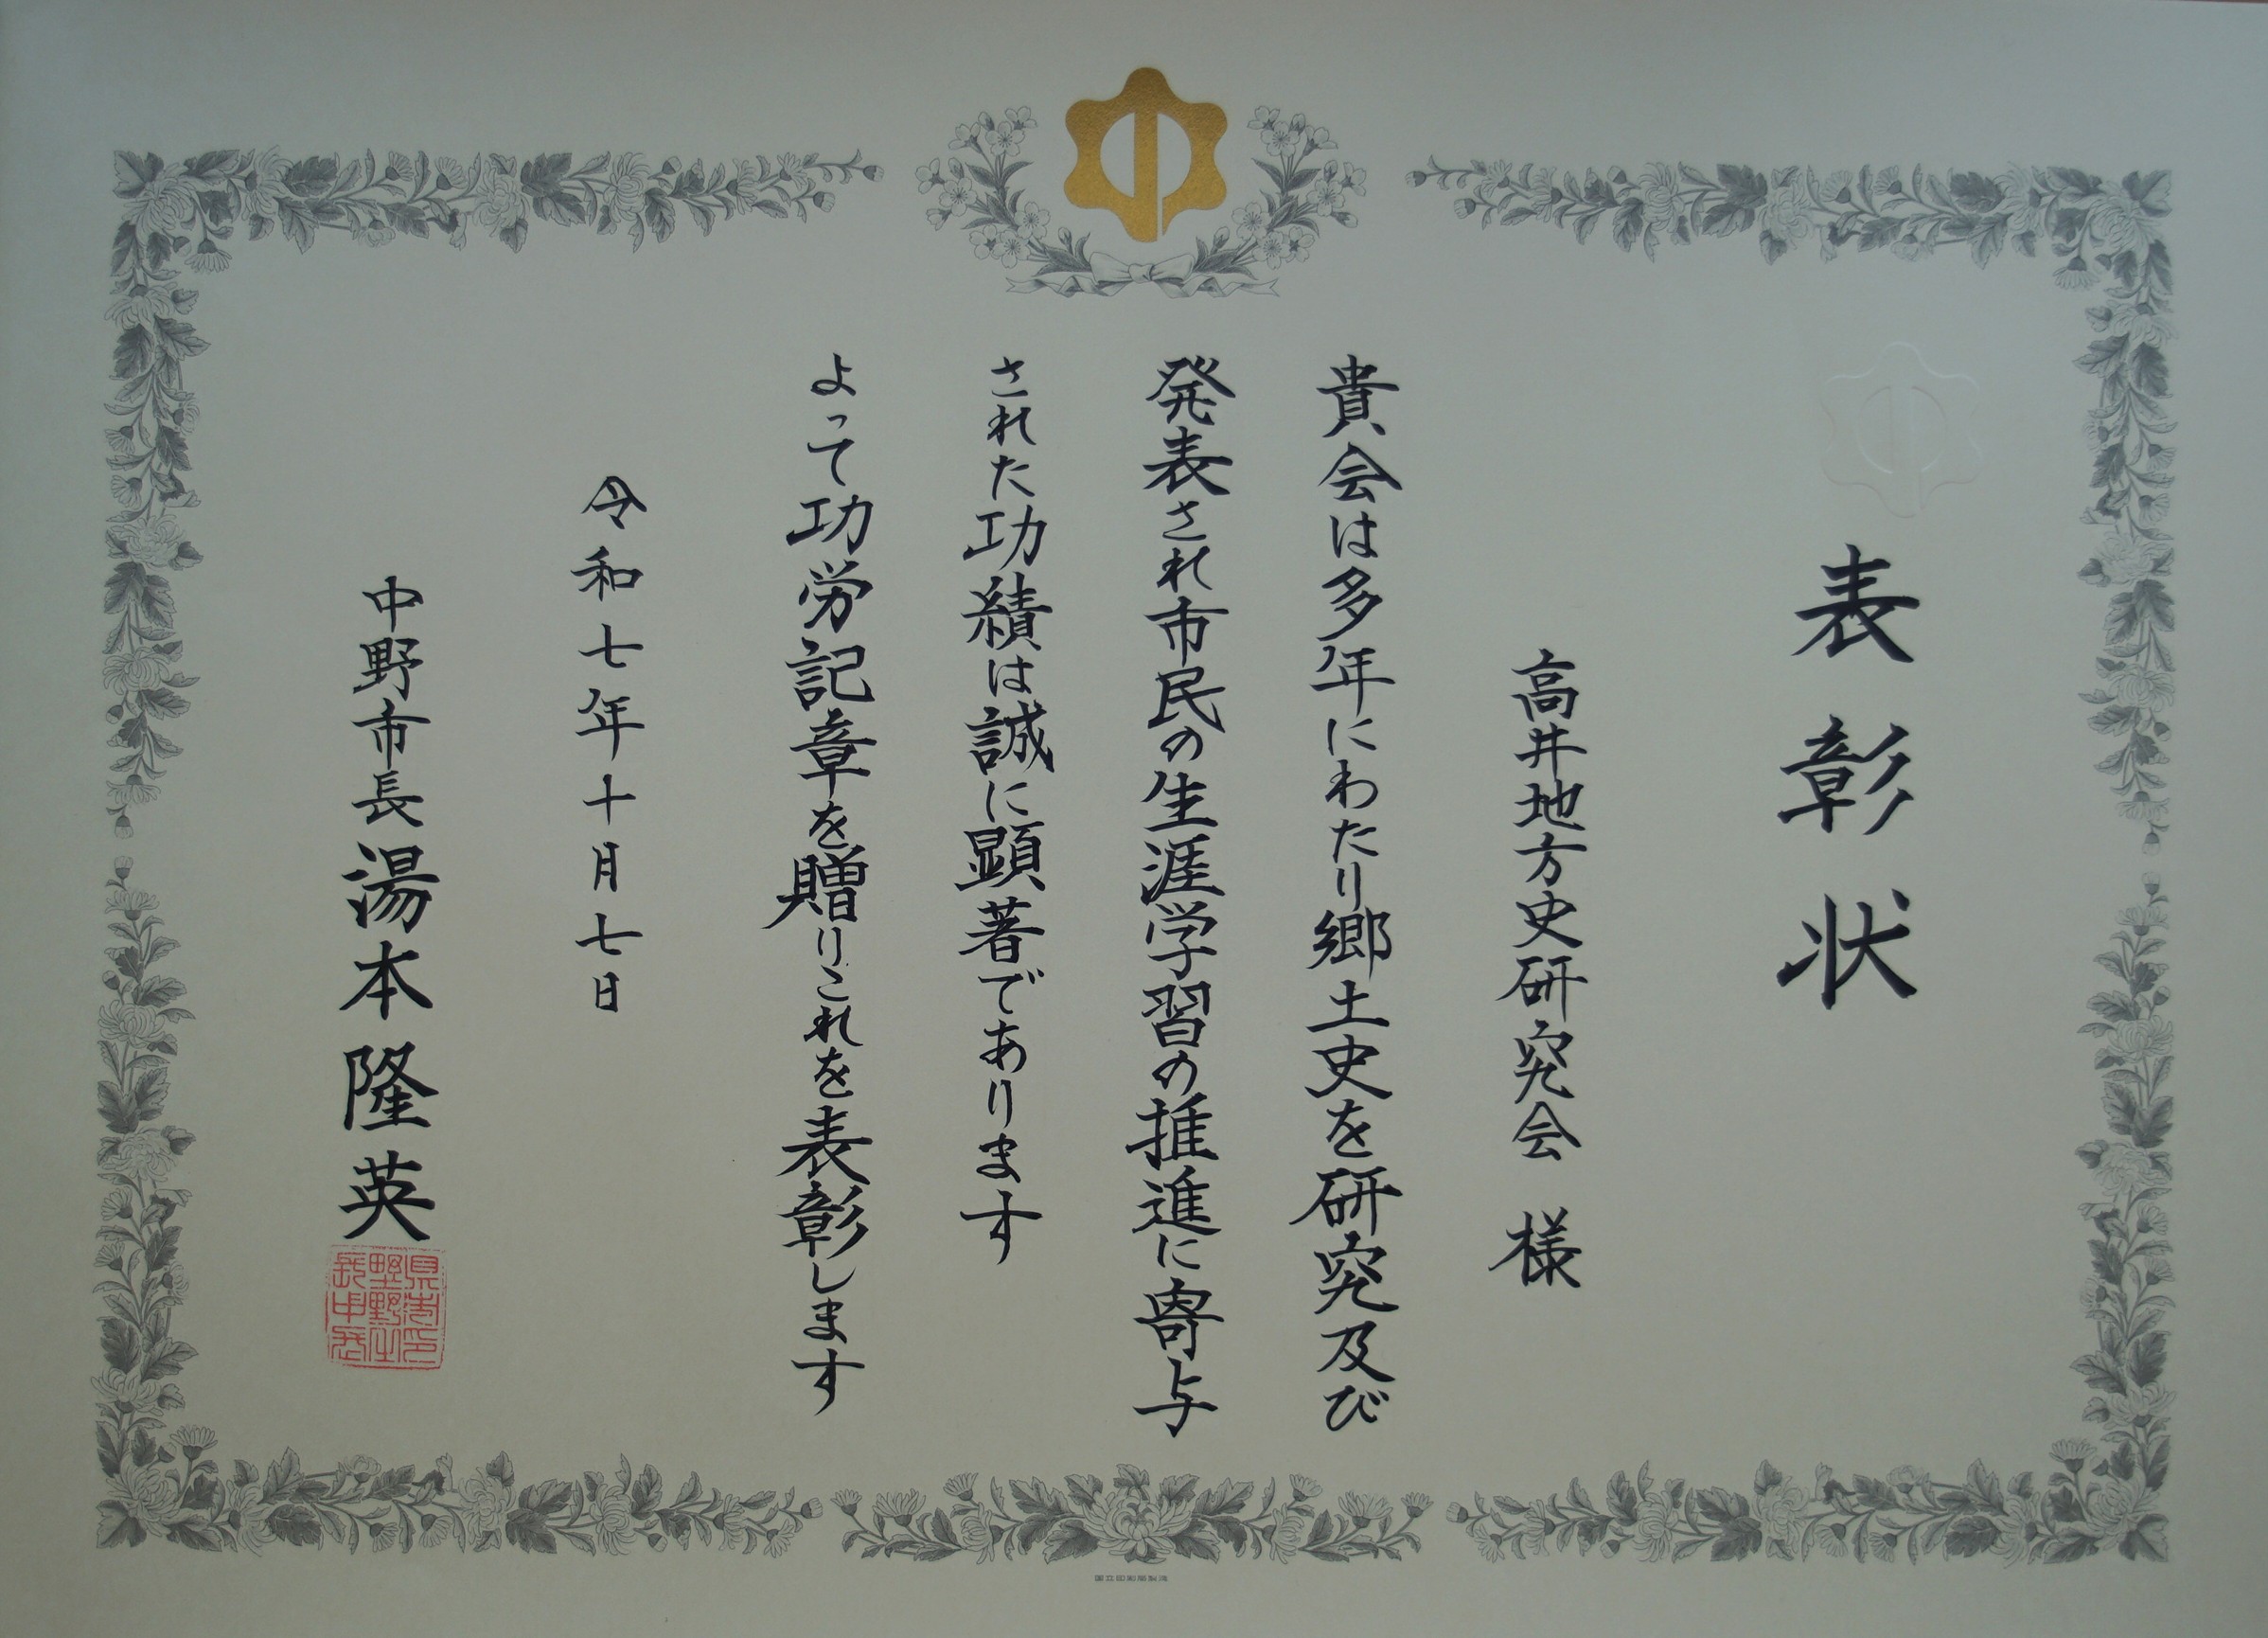 表彰状
高井地方史研究会 様
貴会は多年にわたり郷土史を研究及び
発表され市民の生涯学習の推進に寄与
された功績は誠に顕著であります
よって功労記章を贈りこれを表彰します
令和七年十月七日
中野市長 湯本隆英
国立印刷局製造